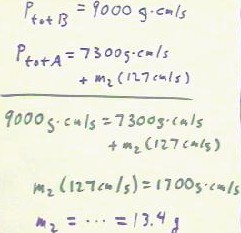 P_tot B = 9000 g·cm/s
P_tot A = 7300 g·cm/s
+ m₂ (127 cm/s)
9000 g·cm/s = 7300 g·cm/s
+ m₂ (127 cm/s)
m₂ (127 cm/s) = 1700 g·cm/s
m₂ = ··· = 13.4 g